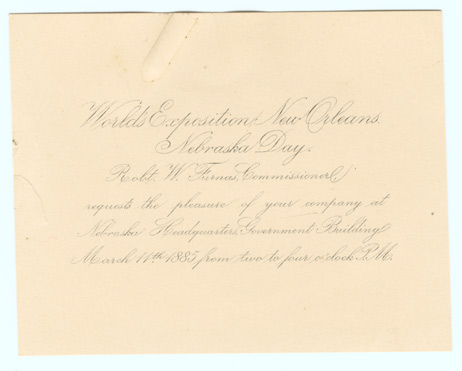 World's Exposition, New Orleans.
Nebraska Day.
Robt. W. Furnas, Commissioner,
requests the pleasure of your company at
Nebraska Headquarters, Government Building
March 11th 1885 from two to four o'clock P.M.